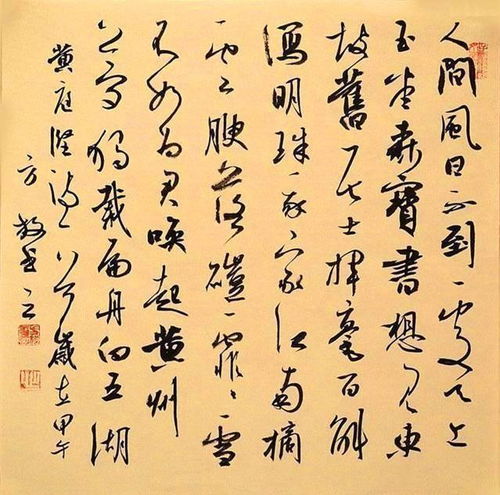 人間風日不到處天上
玉堂森寶書想見東
坡舊居士揮毫百斛
瀉明珠我家江南摘
雲腴落磑霏〻雪
不如為君喚起黃州
夢獨載扁舟向五湖
黃庭堅詩一首歲在甲午
方